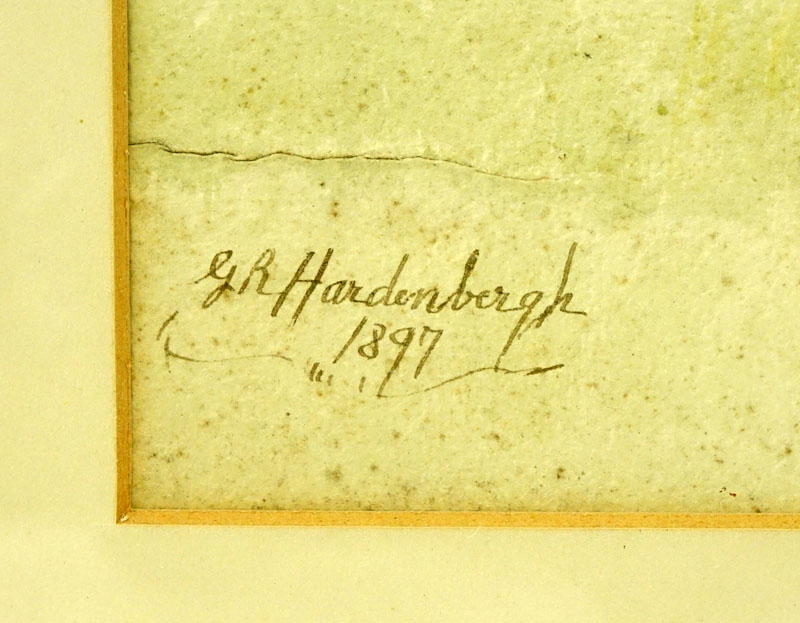 GR Hardenbergh
1897